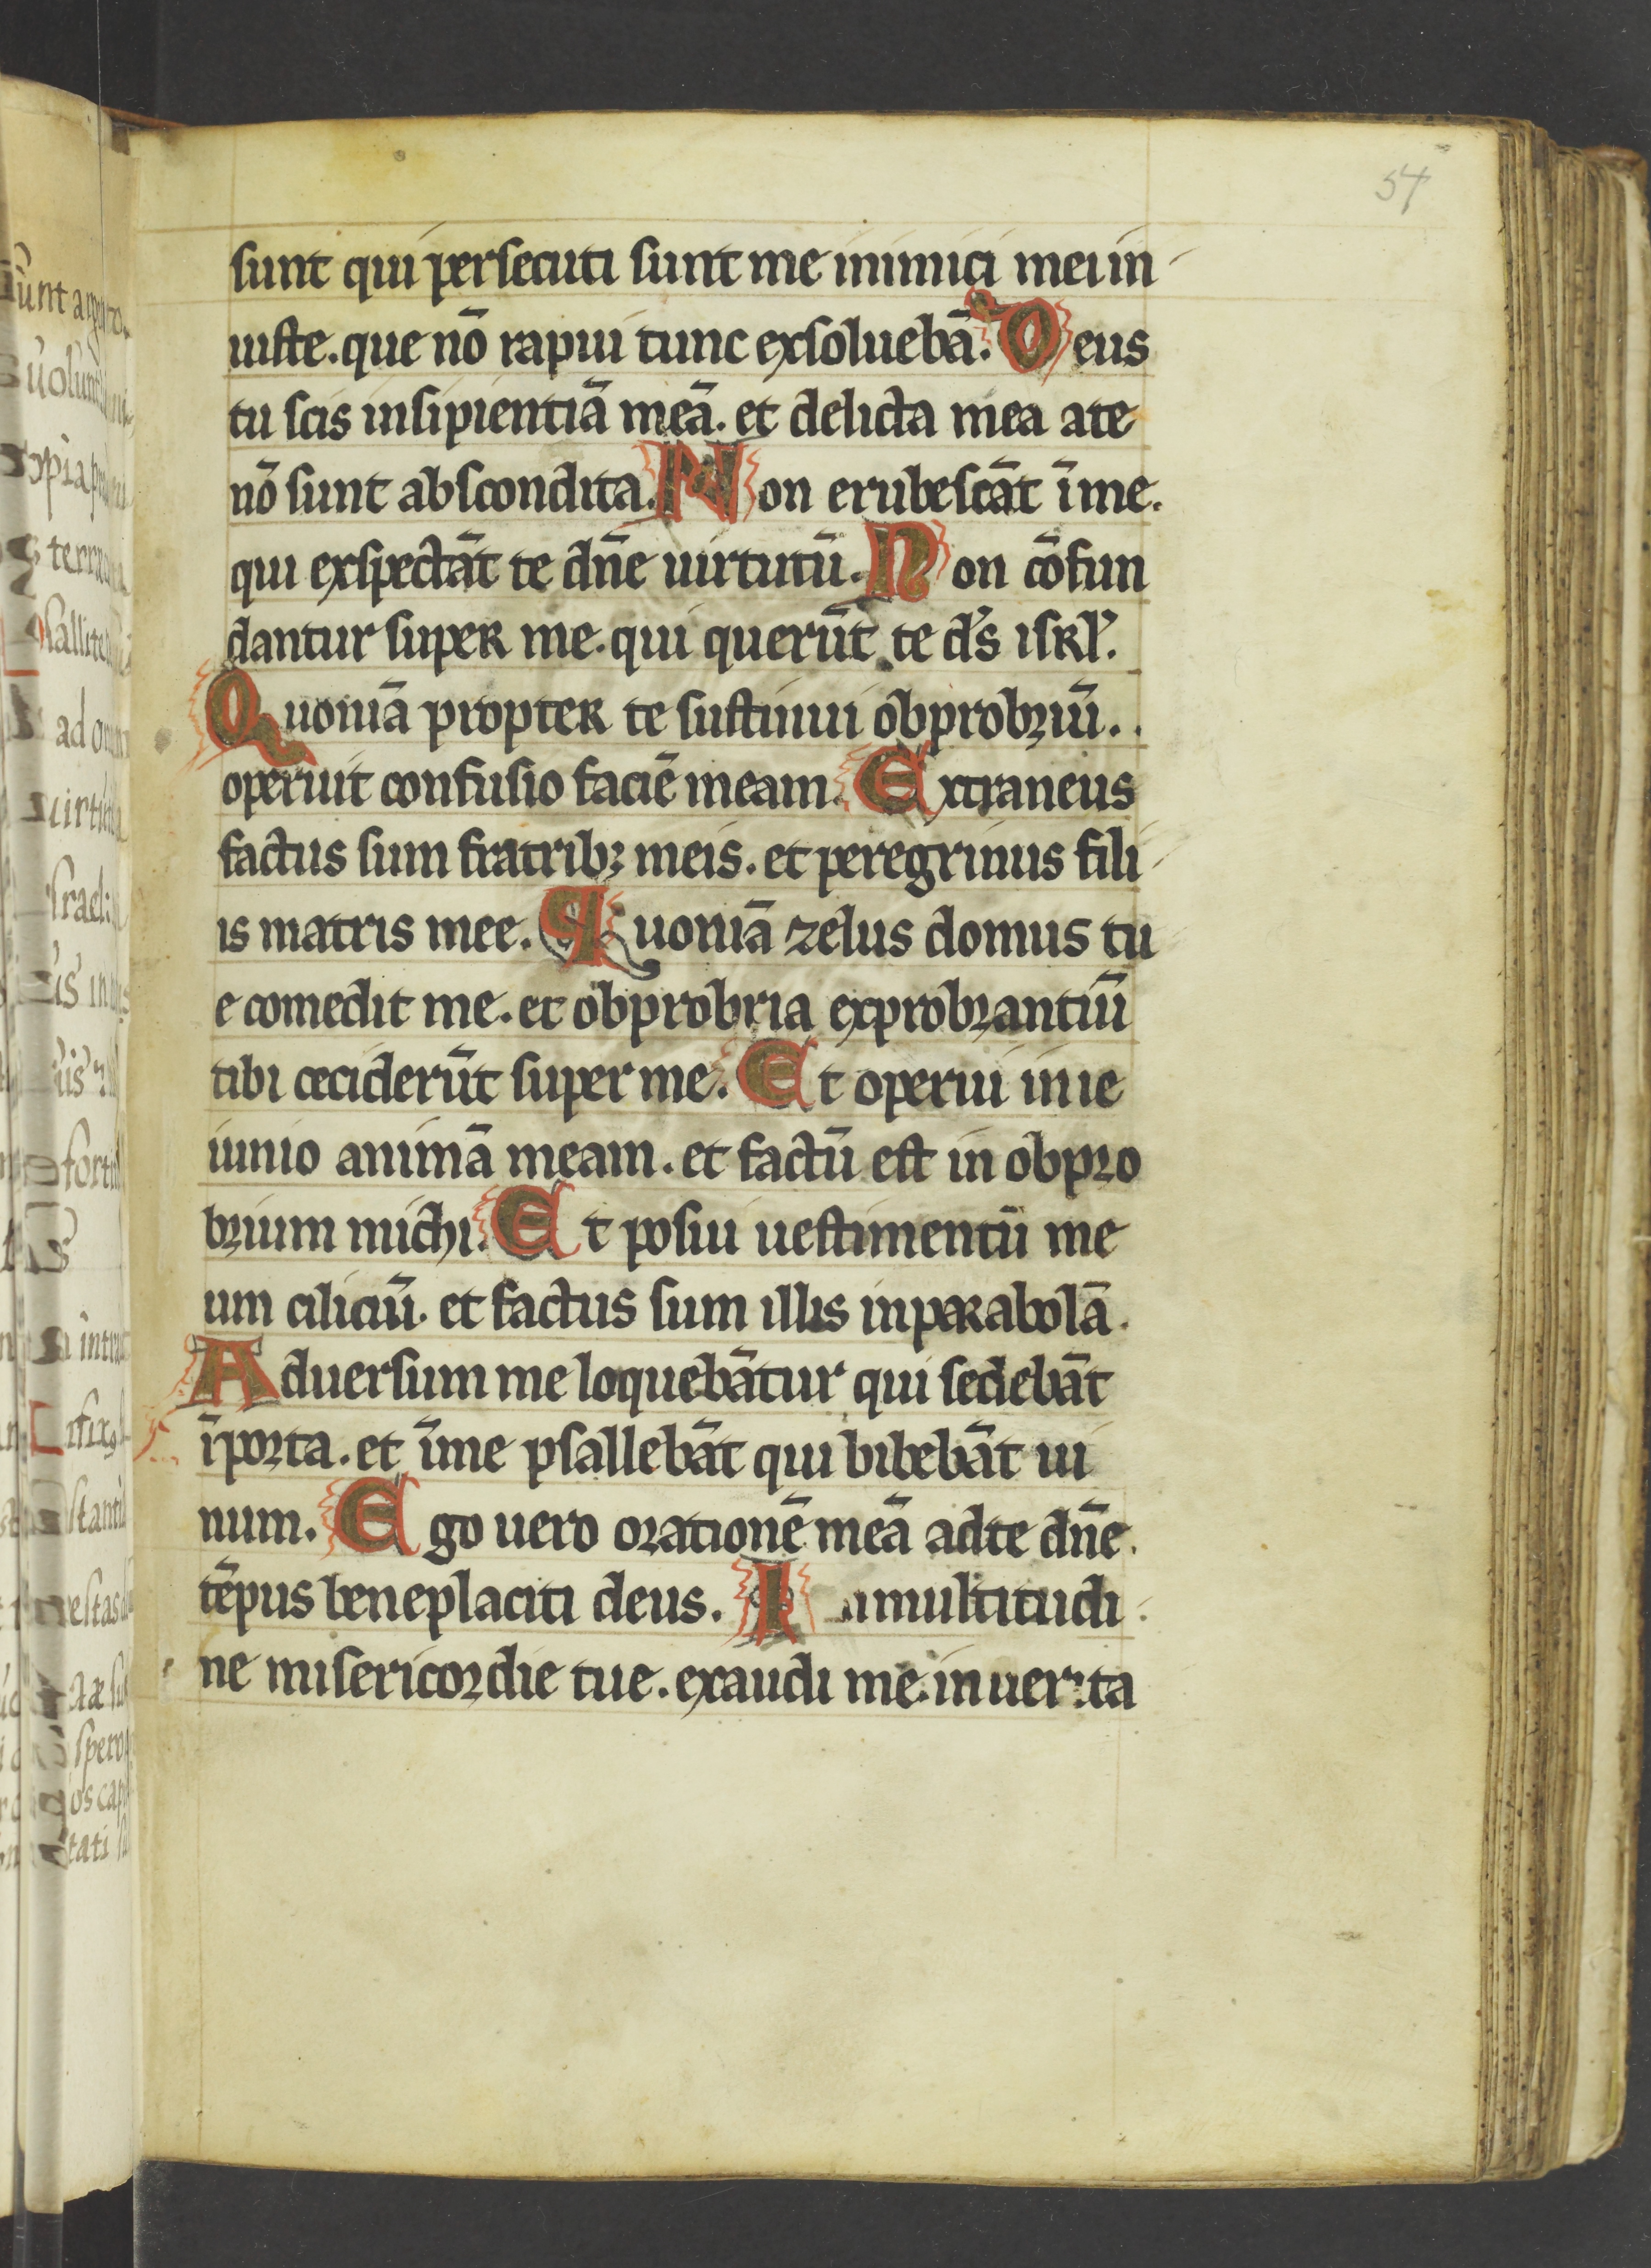 54
sunt qui persecuti sunt me inimici mei in
iuste. que nō rapui tunc exsoluebā. Deus
tu scis insipientiā meā. et delicta mea ate
nō sunt abscondita. Non erubescāt īme.
qui exspectāt te dn̄e uirtutū. Non cōfun
dantur super me. qui querūt te ds̄ isrl̓.
Quoniā propter te sustinui obprobriū..
operuit confusio faciē meam. Extraneus
factus sum fratribꝫ meis. et peregrinus fili
is matris mee. Quoniā zelus domus tu
e comedit me. et obprobria exprobrantiū
tibi ceciderūt super me. Et operui inie
iunio animā meam. et factū est in obpro
brium michi. Et posui uestimentū me
um ciliciū. et factus sum illis inparabolā.
Aduersum me loquebātur qui sedebāt
īporta. et īme psallebāt qui bibebāt ui
num. Ego uero orationē meā adte dn̄e.
tēpus beneplaciti deus. In multitudi
ne misericordie tue. exaudi me. in uerita